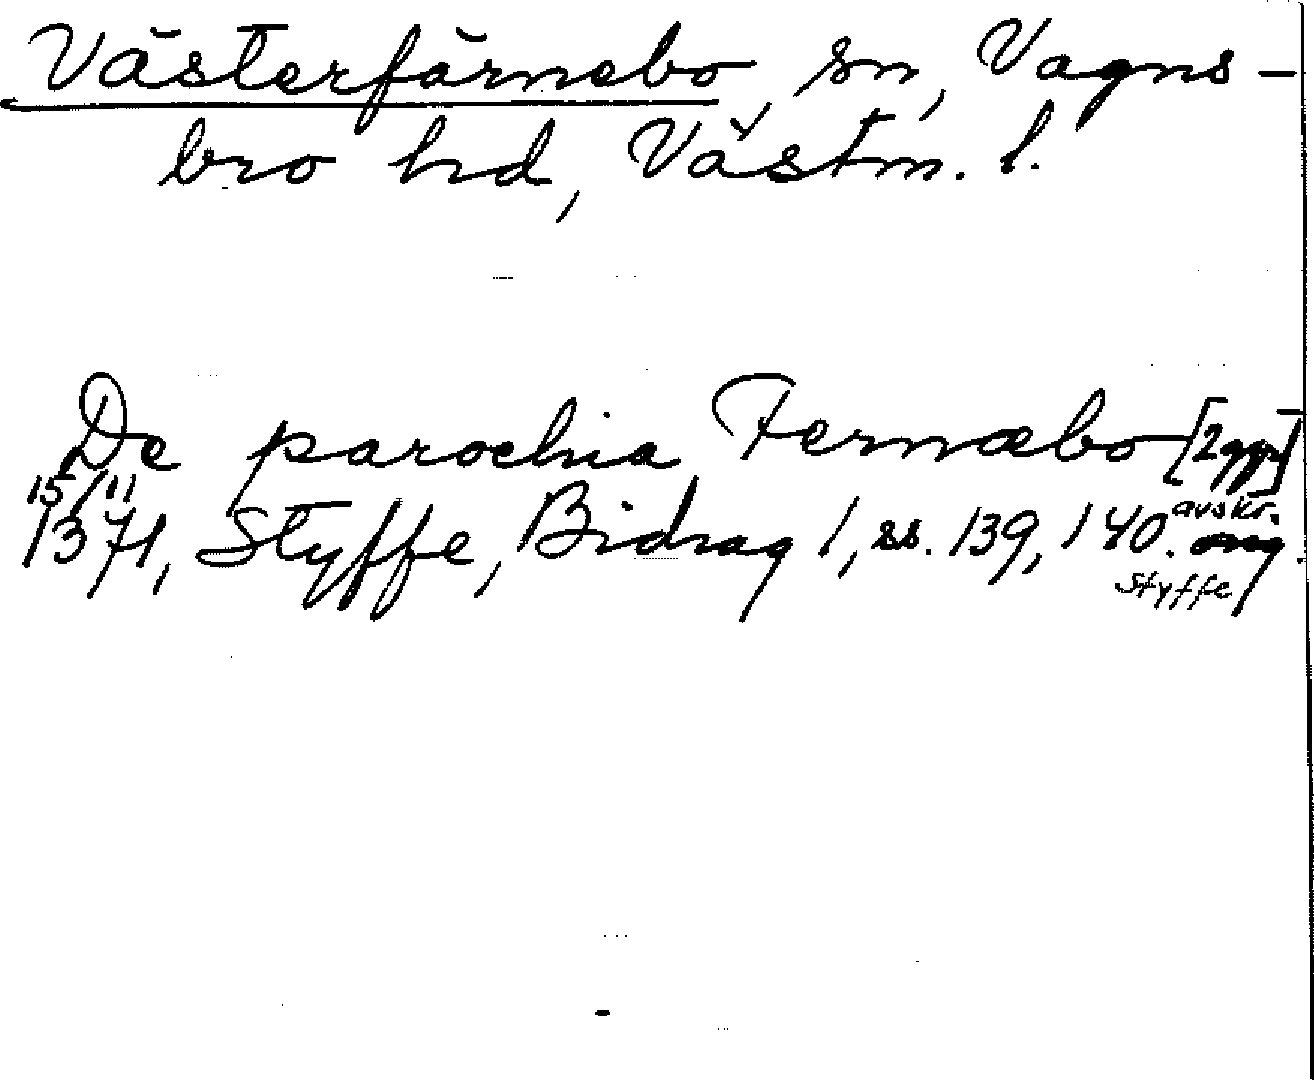 Västerfärnebo, sn, Vagns-
bro hd, Västm. l.
De parochia Fernæbo [2ggr]
15/11
1371, Styffe, Bidrag 1, ss. 139, 140. avskr.
Styffe